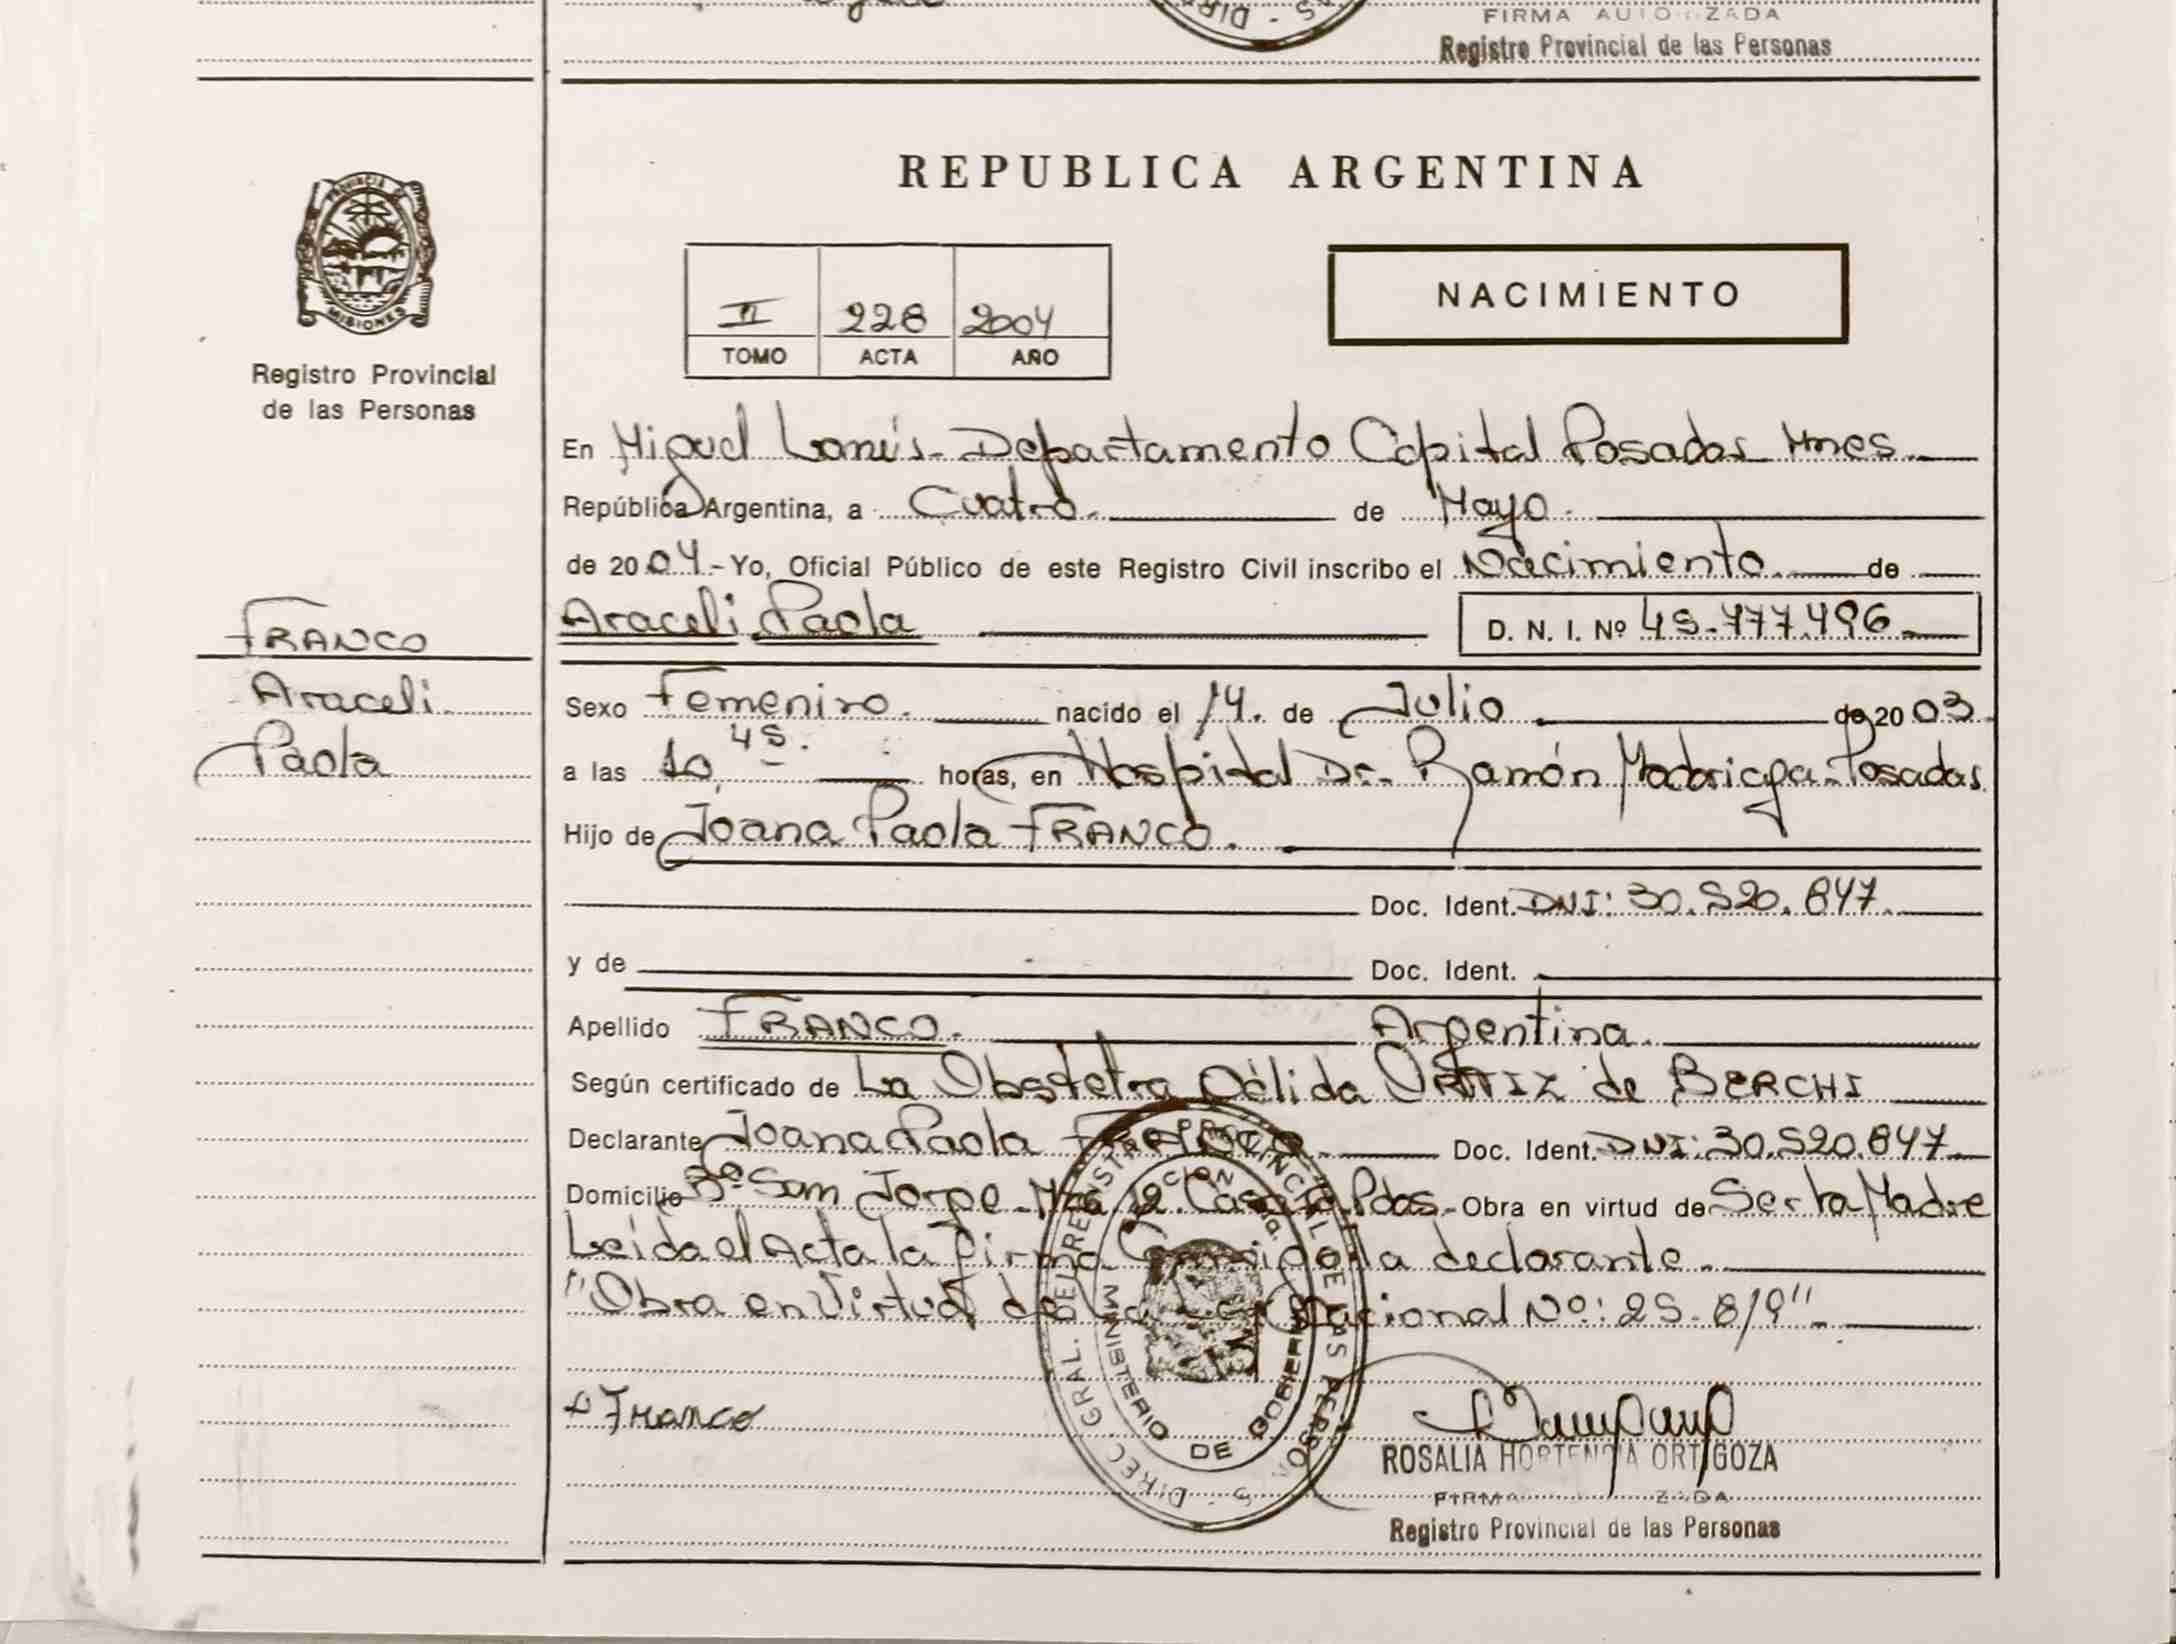 FIRMA AUTORIZADA
Registro Provincial de las Personas
REPUBLICA ARGENTINA
PROVINCIA DE
MISIONES
Registro Provincial
de las Personas
II 228 2004
TOMO ACTA AÑO
NACIMIENTO
En Miguel Lanús - Departamento Capital Posadas Mnes
República Argentina, a Cuatro. de Mayo.
de 2004.- Yo, Oficial Público de este Registro Civil inscribo el Nacimiento. de
FRANCO
Araceli
Paola
Araceli Paola D. N. I. Nº 45.777.496
Sexo Femenino. nacido el 14. de Julio de 2003
a las 10,45. horas, en Hospital Dr. Ramón Madariaga - Posadas
Hijo de Joana Paola FRANCO.
Doc. Ident. DNI: 30.520.847.
y de Doc. Ident.
Apellido FRANCO. Argentina.
Según certificado de La Obstetra Célida ORTIZ de BERCHI
Declarante Joana Paola FRANCO. Doc. Ident. DNI: 30.520.847
Domicilio Bº San Jorge - Mza 12. Casa Pdas. - Obra en virtud de Ser la Madre
Leida el Acta la firma Conmigo la declarante.
"Obra en Virtud de la Ley Nacional Nº: 25.819"
Franco
DIREC. GRAL. DEL REGISTRO PROVINCIAL DE LAS PERSONAS
MINISTERIO DE GOBIERNO
ROSALIA HORTENCIA ORTIGOZA
FIRMA AUTORIZADA
Registro Provincial de las Personas